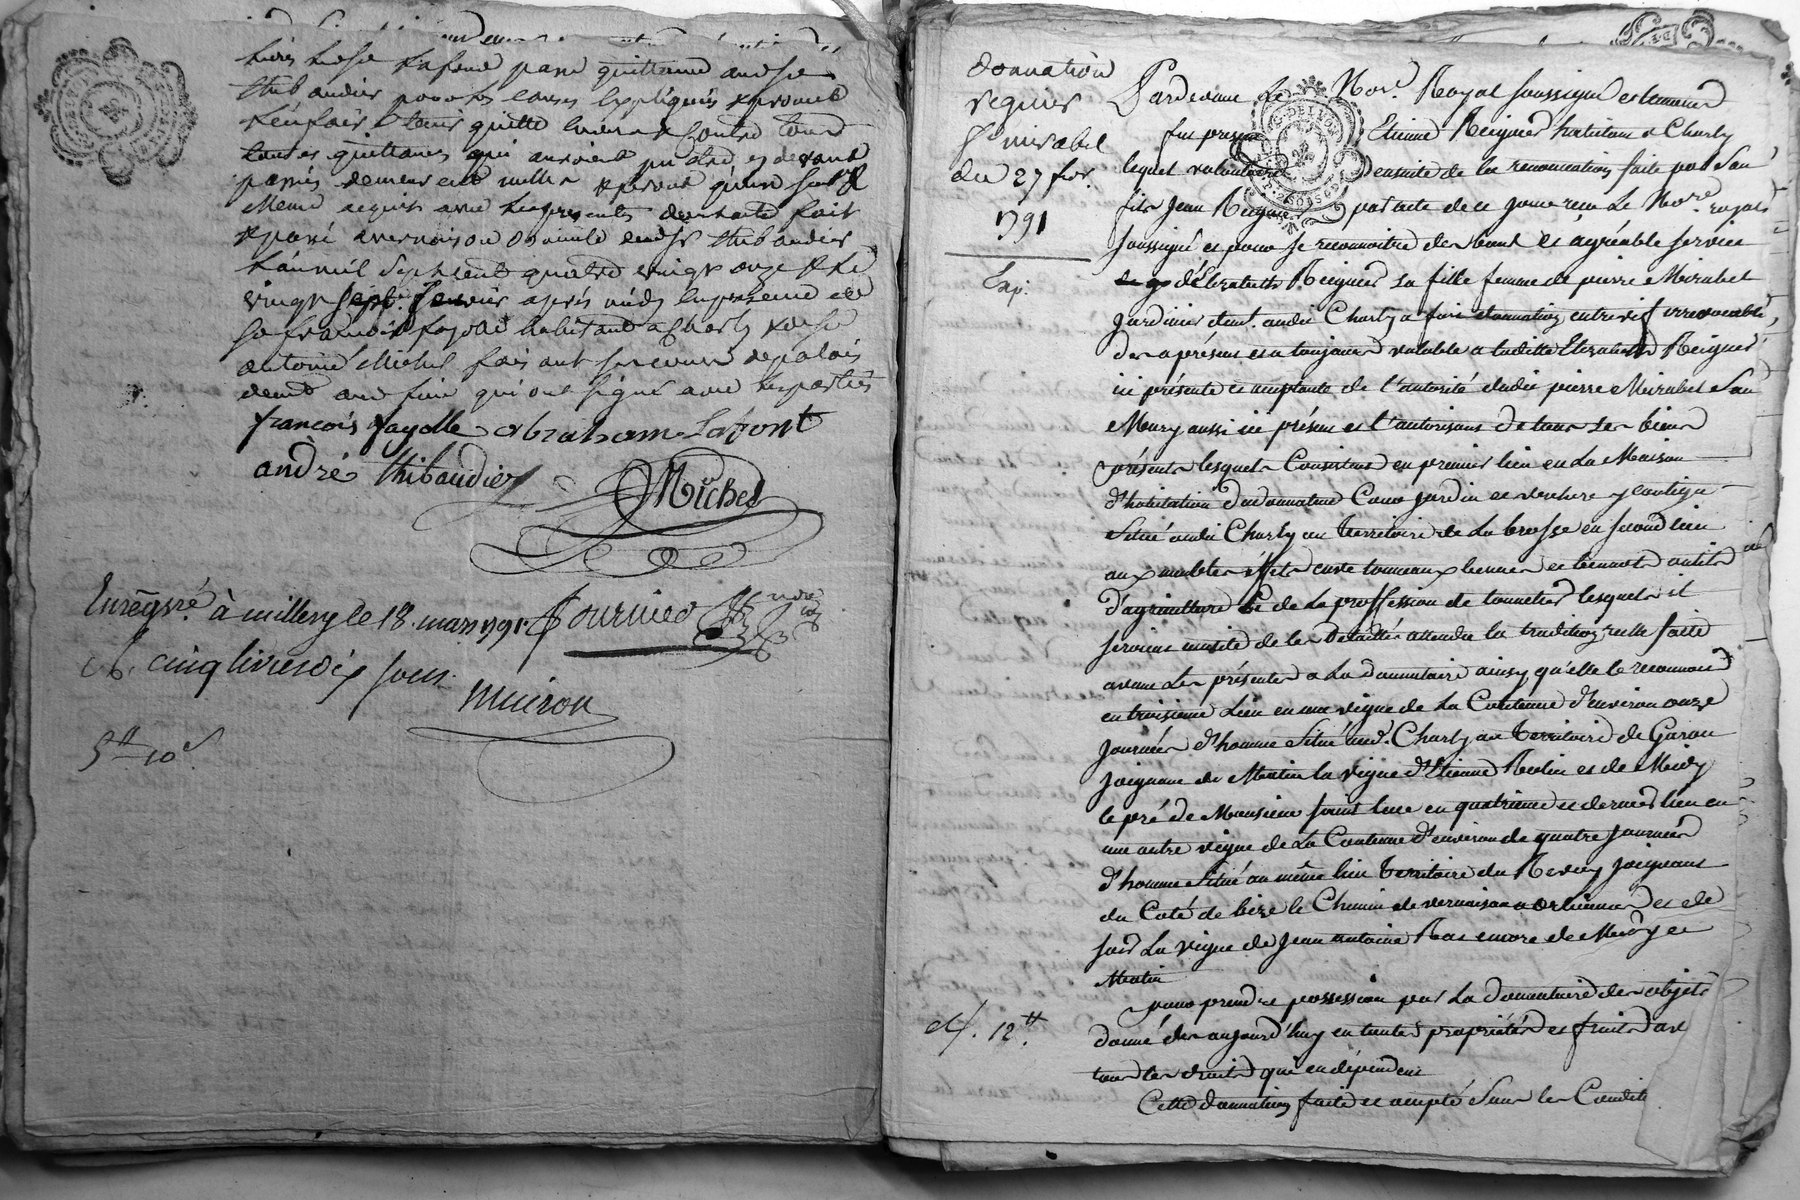 hières ledit Lafond passe quittance audit sieur
thibaudier pour les causes expliquées
tenir quitte envers et contre tous
toutes quittances qui auroient pu être cy devant
passées demeurent nulles
même acquit avec les présentes dont acte fait
et passé à vernaison domicile dudit sr thibaudier
L'an mil sept cent quatre vingt onze et le
vingt sept après midy en présence de
sr francois fayolle habitant a Charly et de sr
antoine Michel
qui ont signé avec les parties
françois fayolle abraham Lafont
andré thibaudier Michel
Enregsré. à millery le 18. mars 1791. Fournier
cinq livres dix sous
muiron
5tt 10s
donnation
regnier
fe mirabel
du 27 fer.
1791
Exp.
et/. 12tt
Pardevant le Nore. Royal soussigné et temoins
fut présent Etienne Reignier habitant a Charly
lequel volontaire ensuite de la renonciation faite par son
fils Jean Reignier par acte de ce jour reçu le Nore. royal
soussigné et pour se reconnoitre des bons et agréable services
d'Elizabeth Reignier sa fille femme de pierre Mirabel
Jardinier demt. audit Charly a fait donnation entrevif irrevocable,
des apresent et a toujours valable a ladite Elizabeth Reignier
ici présente et acceptante de l'autorité dudit pierre Mirabel son
Mary aussi ici présent et l'autorisant de tous ses biens
présents lesquels Consistent en premier lieu en La Maison
d'habitation du donnateur Cour Jardin et verchere y contigu
Situé audit Charly au Territoire de La brosse en second lieu
aux meubles effets cuve tonneaux bennes et bennots outils
d'agriculture et de La proffession de tonnelier lesquels il
seroient inutile de les détaillés attendu la tradition réelle faite
avant les présentes a La donnataire ainsy qu'elle le reconnoit
en troisieme Lieu en une vigne de La Contenue d'environ onze
Journées d'homme Situé aud. Charly au Territoire de Garon
Joignant de Matin la vigne d'Etienne Rolin et de Midy
le pré de Monsieur saint luc en quatrieme et dernier lieu en
une autre vigne de La Contenue d'environ de quatre Journées
d'homme Situé au même lieu Territoire du Revoy Joignant
du Coté de bize le Chemin de vernaison a orlienas et de
soir La vigne de Jean antoine Ras encore de Midy et
Matin
pour prendre possession par La donnataire des objets
donné des aujourd'huy en toutes propriétés et fruits avec
tous les droits qui en dépendent
Cette donnation faite et accepté Sous les Condit